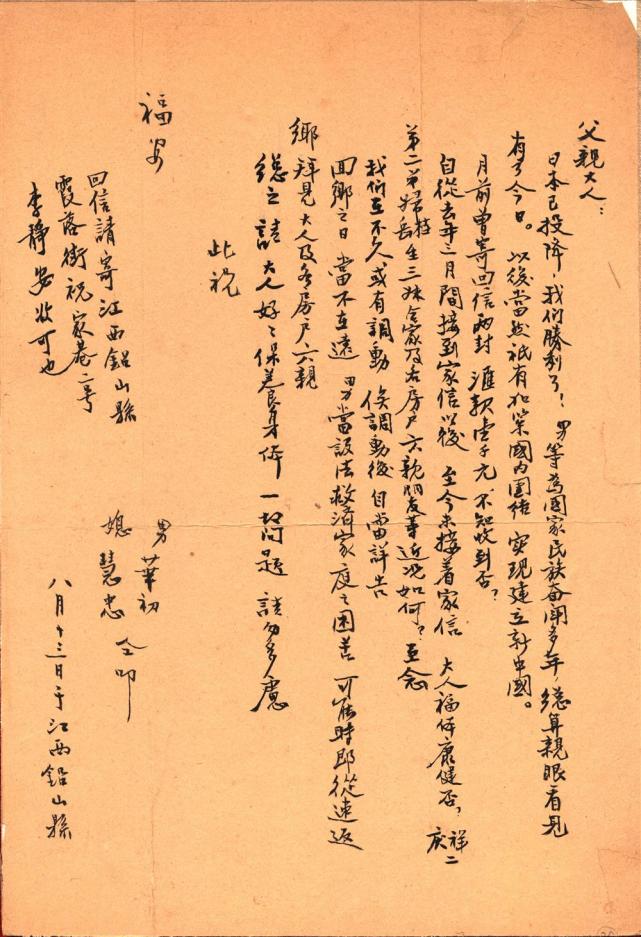 父親大人：
日本已投降，我們勝利了！男等為國家民族奋闘多年，總算親眼看見
有了今日。以後當然祇有加榮國内團結，实現建立新中國。
月前曾寄回信两封，滙款壹千元，不知收到否？
自從去年三月間接到家信以後，至今未接着家信，大人福体康健否？祥二
庆
第二弟婦桂岳生三妹全家及右房戶六親朋友等近况如何？至念
我们在不久或有調動，俟調動後自當詳告
回鄉之日，當不在遠，男當設法救濟家庭之困苦，可能時即從速返
鄉拜見大人及各房戶六親
總之請大人好々保养身体，一切问题，請勿多慮
此祝
福安
男 華初
媳 慧忠 仝叩
八月十三日于江西鉛山縣
回信請寄江西鉛山縣
霞落街祝家巷二号
李靜安收可也